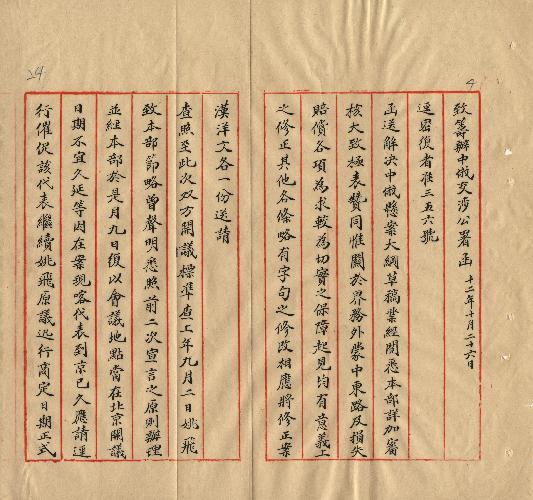 4
致籌辦中俄交涉公署函 十二年十月二十六日
逕密復者准三五六號
函送解決中俄懸案大綱草稿業經閱悉本部詳加審
核大致極表贊同惟關於界務外蒙中東路及損失
賠償各項為求較為切實之保障起見均有意義上
之修正其他各條略有字句之修改相應將修正案
24
漢洋文各一份送請
查照至此次双方開議標準查上年九月二日姚飛
致本部節略曾聲明悉照前二次宣言之原則辦理
並經本部於是月九日復以會議地點當在北京開議
日期不宜久延等因在案現喀代表到京已久應請逕
行催促該代表繼續姚飛原議迅行商定日期正式